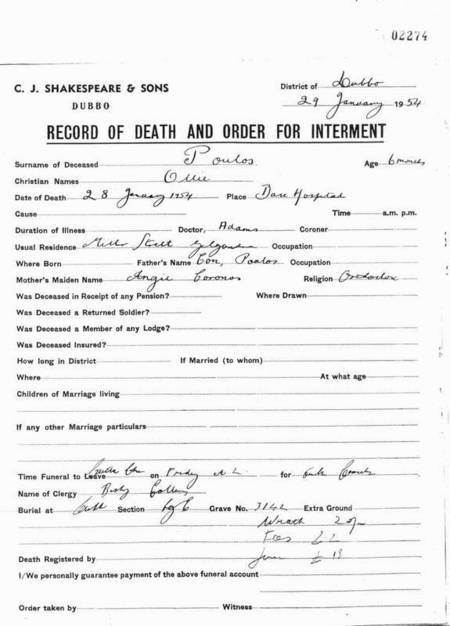 02274
C. J. SHAKESPEARE & SONS
DUBBO
District of Dubbo
29 January 1954
RECORD OF DEATH AND ORDER FOR INTERMENT
Surname of Deceased Poulos Age 6 months
Christian Names Ollie
Date of Death 28 January 1954 Place Hospital
Cause Time a.m. p.m.
Duration of Illness Doctor, Adams Coroner
Usual Residence Street Gilgandra Occupation
Where Born Father's Name Con, Poulos Occupation
Mother's Maiden Name Angie Coronos Religion Orthodox
Was Deceased in Receipt of any Pension? Where Drawn
Was Deceased a Returned Soldier?
Was Deceased a Member of any Lodge?
Was Deceased Insured?
How long in District If Married (to whom)
Where At what age
Children of Marriage living
If any other Marriage particulars
Time Funeral to Leave on Friday at 2 for
Name of Clergy
Burial at Section Grave No. 3142 Extra Ground
Wreath
Fees
Death Registered by
I/We personally guarantee payment of the above funeral account
Order taken by Witness